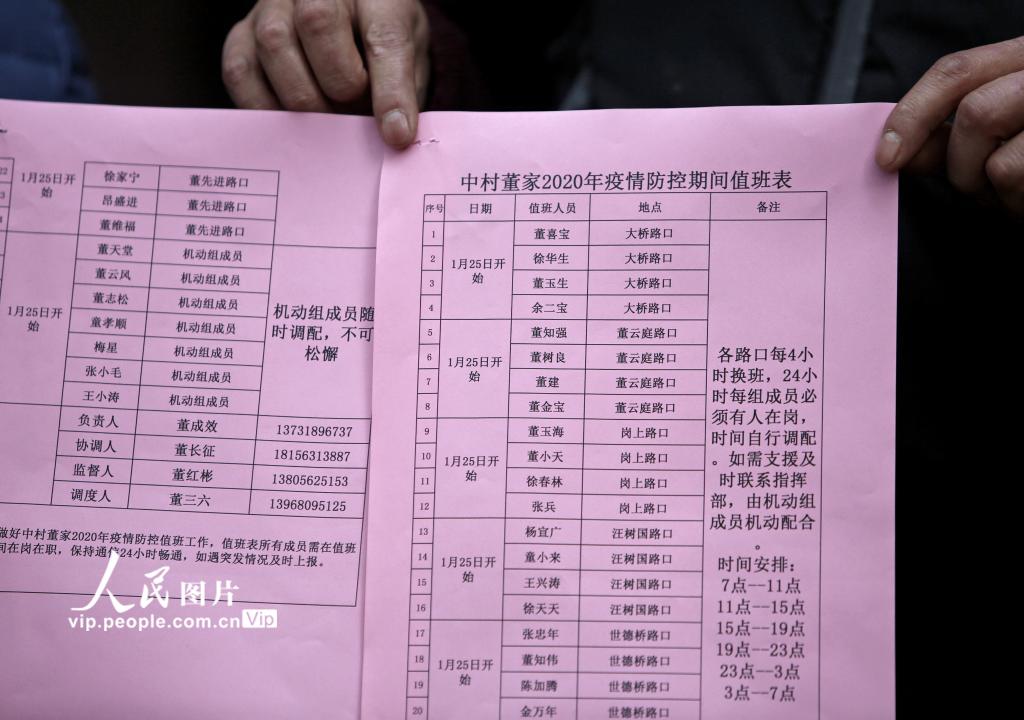 22 1月25日开始 徐家宁 董先进路口
3 昂盛进 董先进路口
4 董维福 董先进路口
1月25日开始 董天堂 机动组成员 机动组成员随时调配，不可松懈
董云风 机动组成员
董志松 机动组成员
童孝顺 机动组成员
梅星 机动组成员
张小毛 机动组成员
王小涛 机动组成员
负责人 董成效 13731896737
协调人 董长征 18156313887
监督人 董红彬 13805625153
调度人 董三六 13968095125
做好中村董家2020年疫情防控值班工作，值班表所有成员需在值班
间在岗在职，保持通信24小时畅通，如遇突发情况及时上报。
人民图片
vip.people.com.cn Vip
中村董家2020年疫情防控期间值班表
序号 日期 值班人员 地点 备注
1 1月25日开始 董喜宝 大桥路口
2 徐华生 大桥路口
3 董玉生 大桥路口
4 余二宝 大桥路口
5 1月25日开始 董知强 董云庭路口
6 董树良 董云庭路口
7 董建 董云庭路口
8 董金宝 董云庭路口
9 1月25日开始 董玉海 岗上路口
10 董小天 岗上路口
11 徐春林 岗上路口
12 张兵 岗上路口
13 1月25日开始 杨宜广 汪树国路口
14 童小来 汪树国路口
15 王兴涛 汪树国路口
16 徐天天 汪树国路口
17 1月25日开始 张忠年 世德桥路口
18 董知伟 世德桥路口
19 陈加腾 世德桥路口
20 金万年 世德桥路口
各路口每4小
时换班，24小
时每组成员必
须有人在岗，
时间自行调配
。如需支援及
时联系指挥
部，由机动组
成员机动配合
。
时间安排：
7点--11点
11点--15点
15点--19点
19点--23点
23点--3点
3点--7点